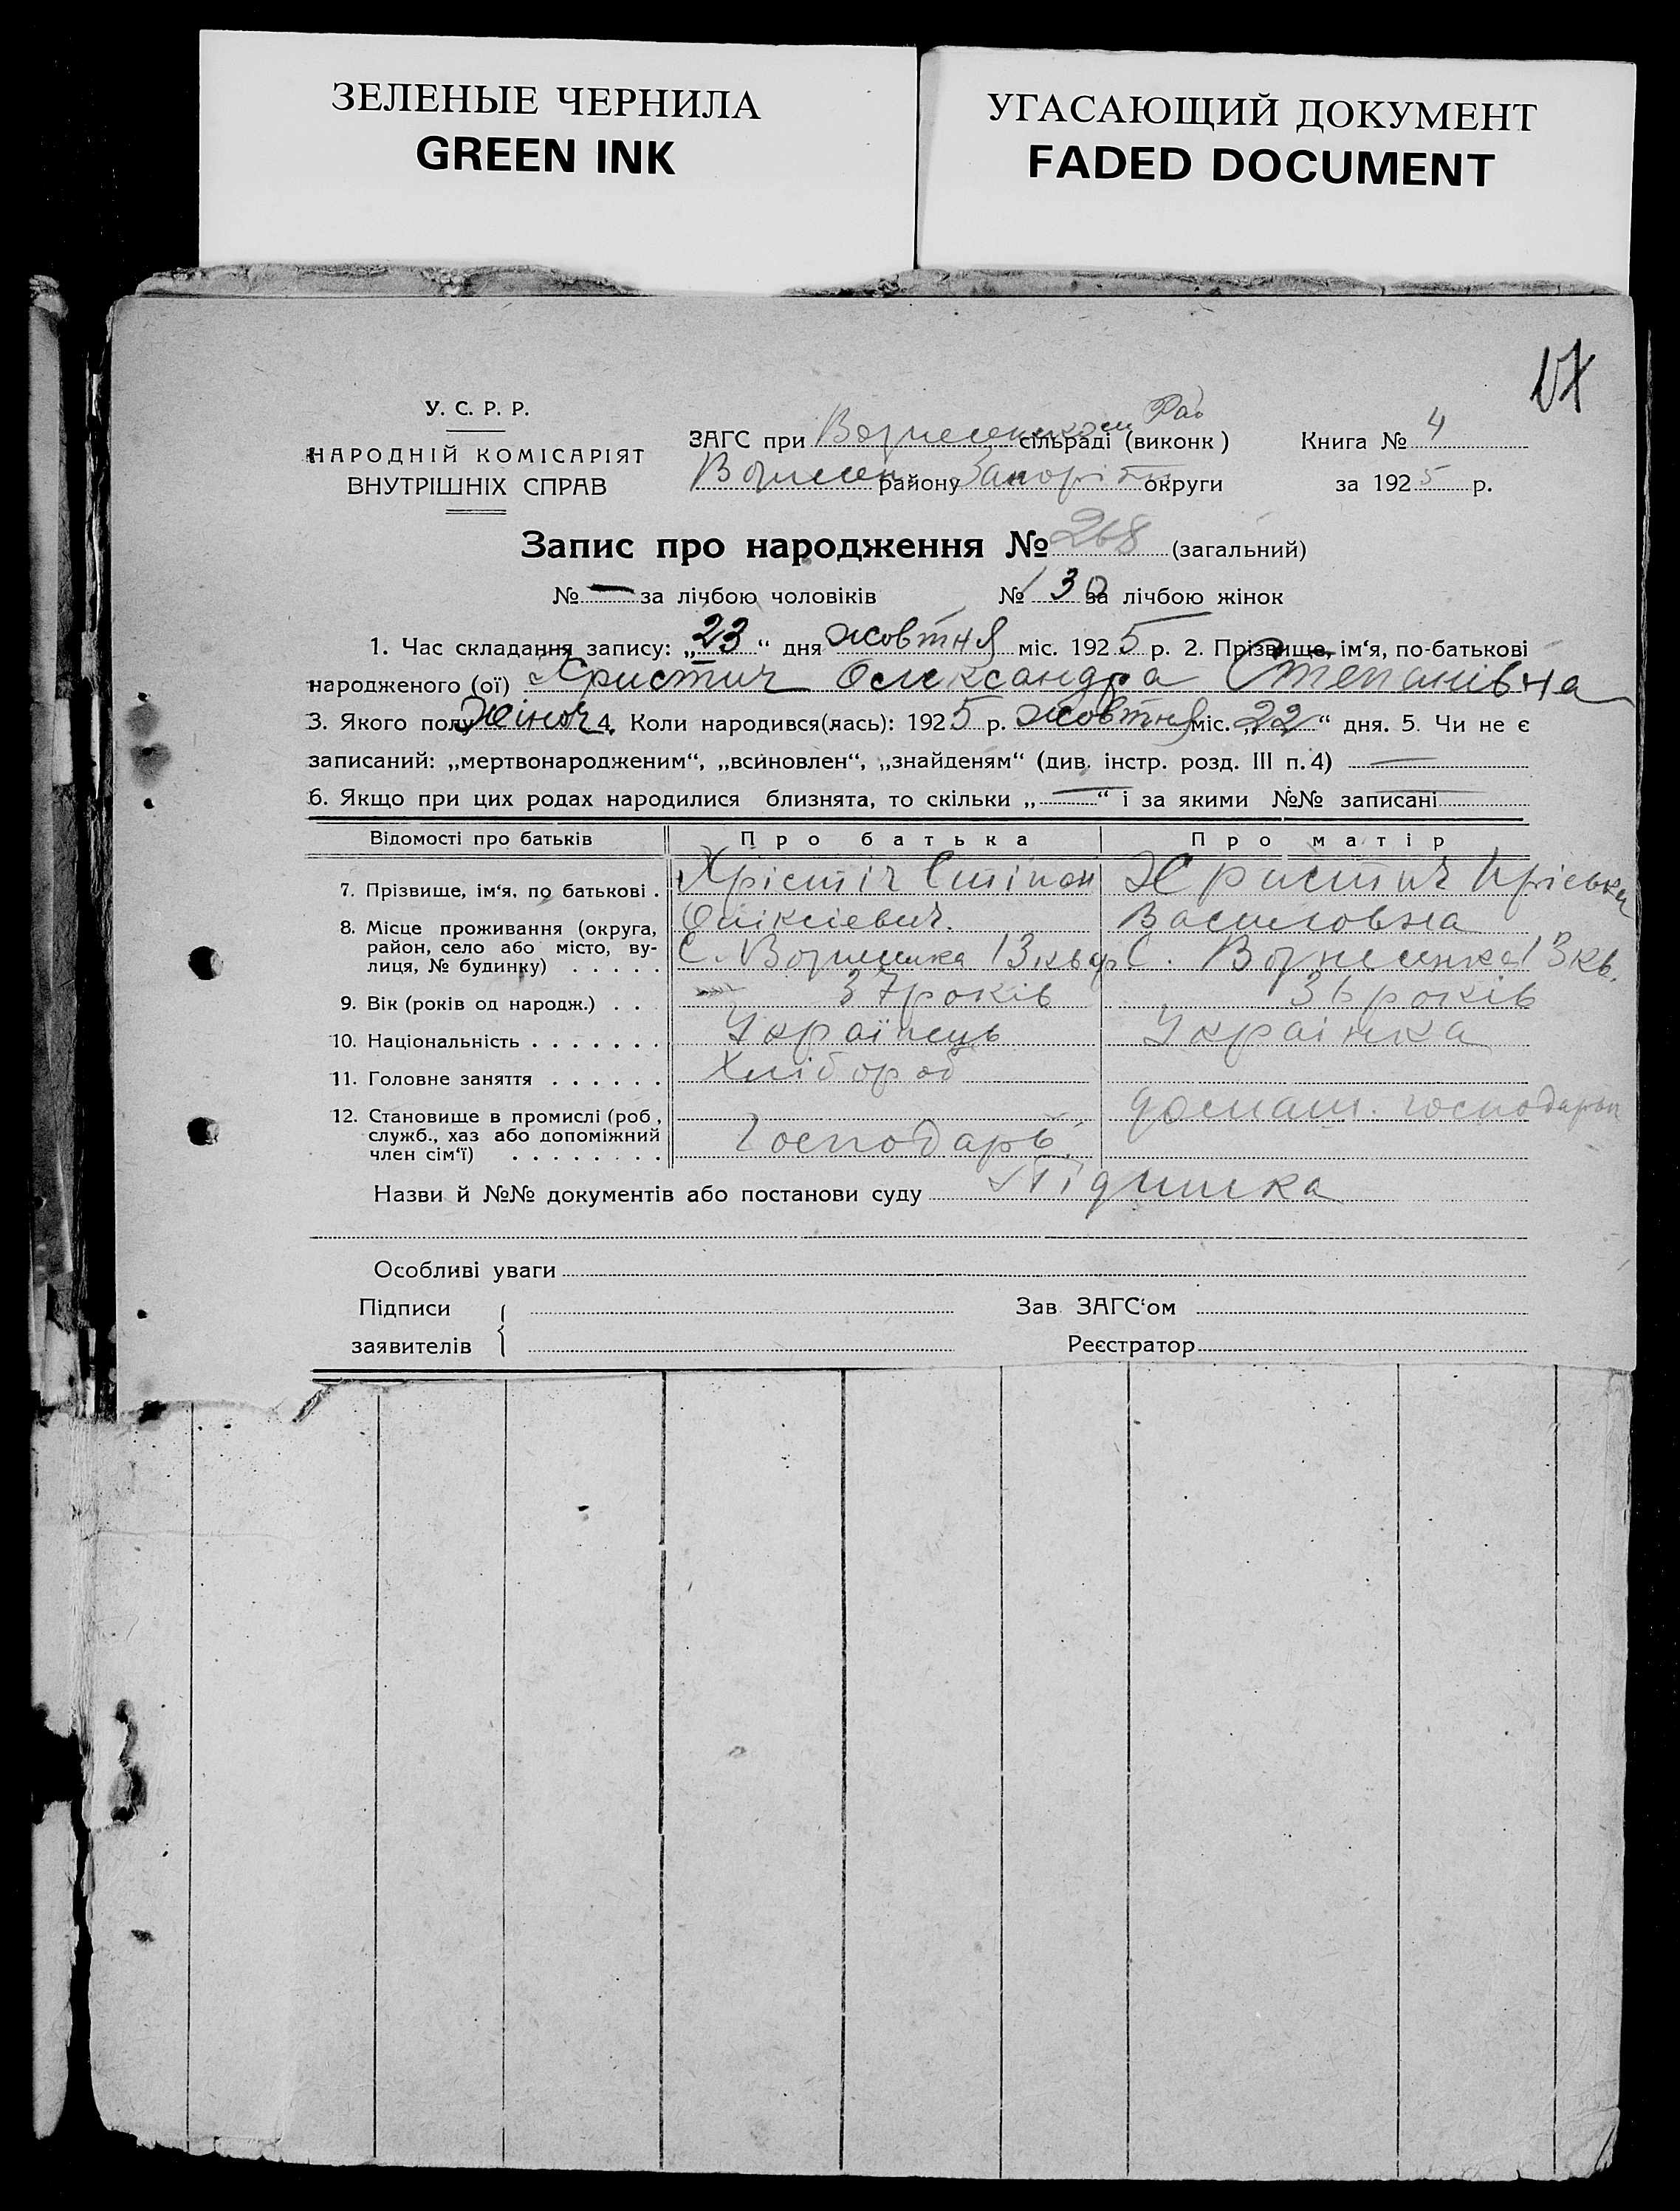 ЗЕЛЕНЫЕ ЧЕРНИЛА
GREEN INK
УГАСАЮЩИЙ ДОКУМЕНТ
FADED DOCUMENT
17
У. С. Р. Р.
НАРОДНІЙ КОМІСАРІЯТ
ВНУТРІШНІХ СПРАВ
ЗАГС при Вознесенском сільраді (виконк) Книга № 4
Вознесен району округи за 1925 р.
Запис про народження № 268 (загальний)
№ — за лічбою чоловіків № 130 за лічбою жінок
1. Час складання запису: „23“ дня жовтня міс. 1925 р. 2. Прізвище, ім‘я, по-батькові
народженого (ої) Христич Олександра Степанівна
3. Якого полу жіноч. 4. Коли народився(лась): 1925 р. жовтня міс. „22“ дня. 5. Чи не є
записаний: „мертвонародженим“, „всиновлен“, „знайденям“ (див. інстр. розд. III п. 4) —
6. Якщо при цих родах народилися близнята, то скільки „—“ і за якими №№ записані —
Відомості про батьків Про батька Про матір
7. Прізвище, ім‘я, по батькові . Хрістіч Стіпан Христич Пріська
Оліксіевич. Василовна
8. Місце проживання (округа, район, село або місто, вулиця, № будинку) . . . . . С. Вознесенка 13 квар С. Вознесенка 13 кв.
9. Вік (років од народж.) . . 37 років 36 років
10. Національність . . . . . . . Українець Українка
11. Головне заняття . . . . . . Хлібороб
12. Становище в промислі (роб., служб., хаз або допоміжний член сім‘ї) . . . . . . . . Господарь домаш.
Назви й №№ документів або постанови суду
Особливі уваги
Підписи Зав. ЗАГС‘ом
заявителів Реєстратор